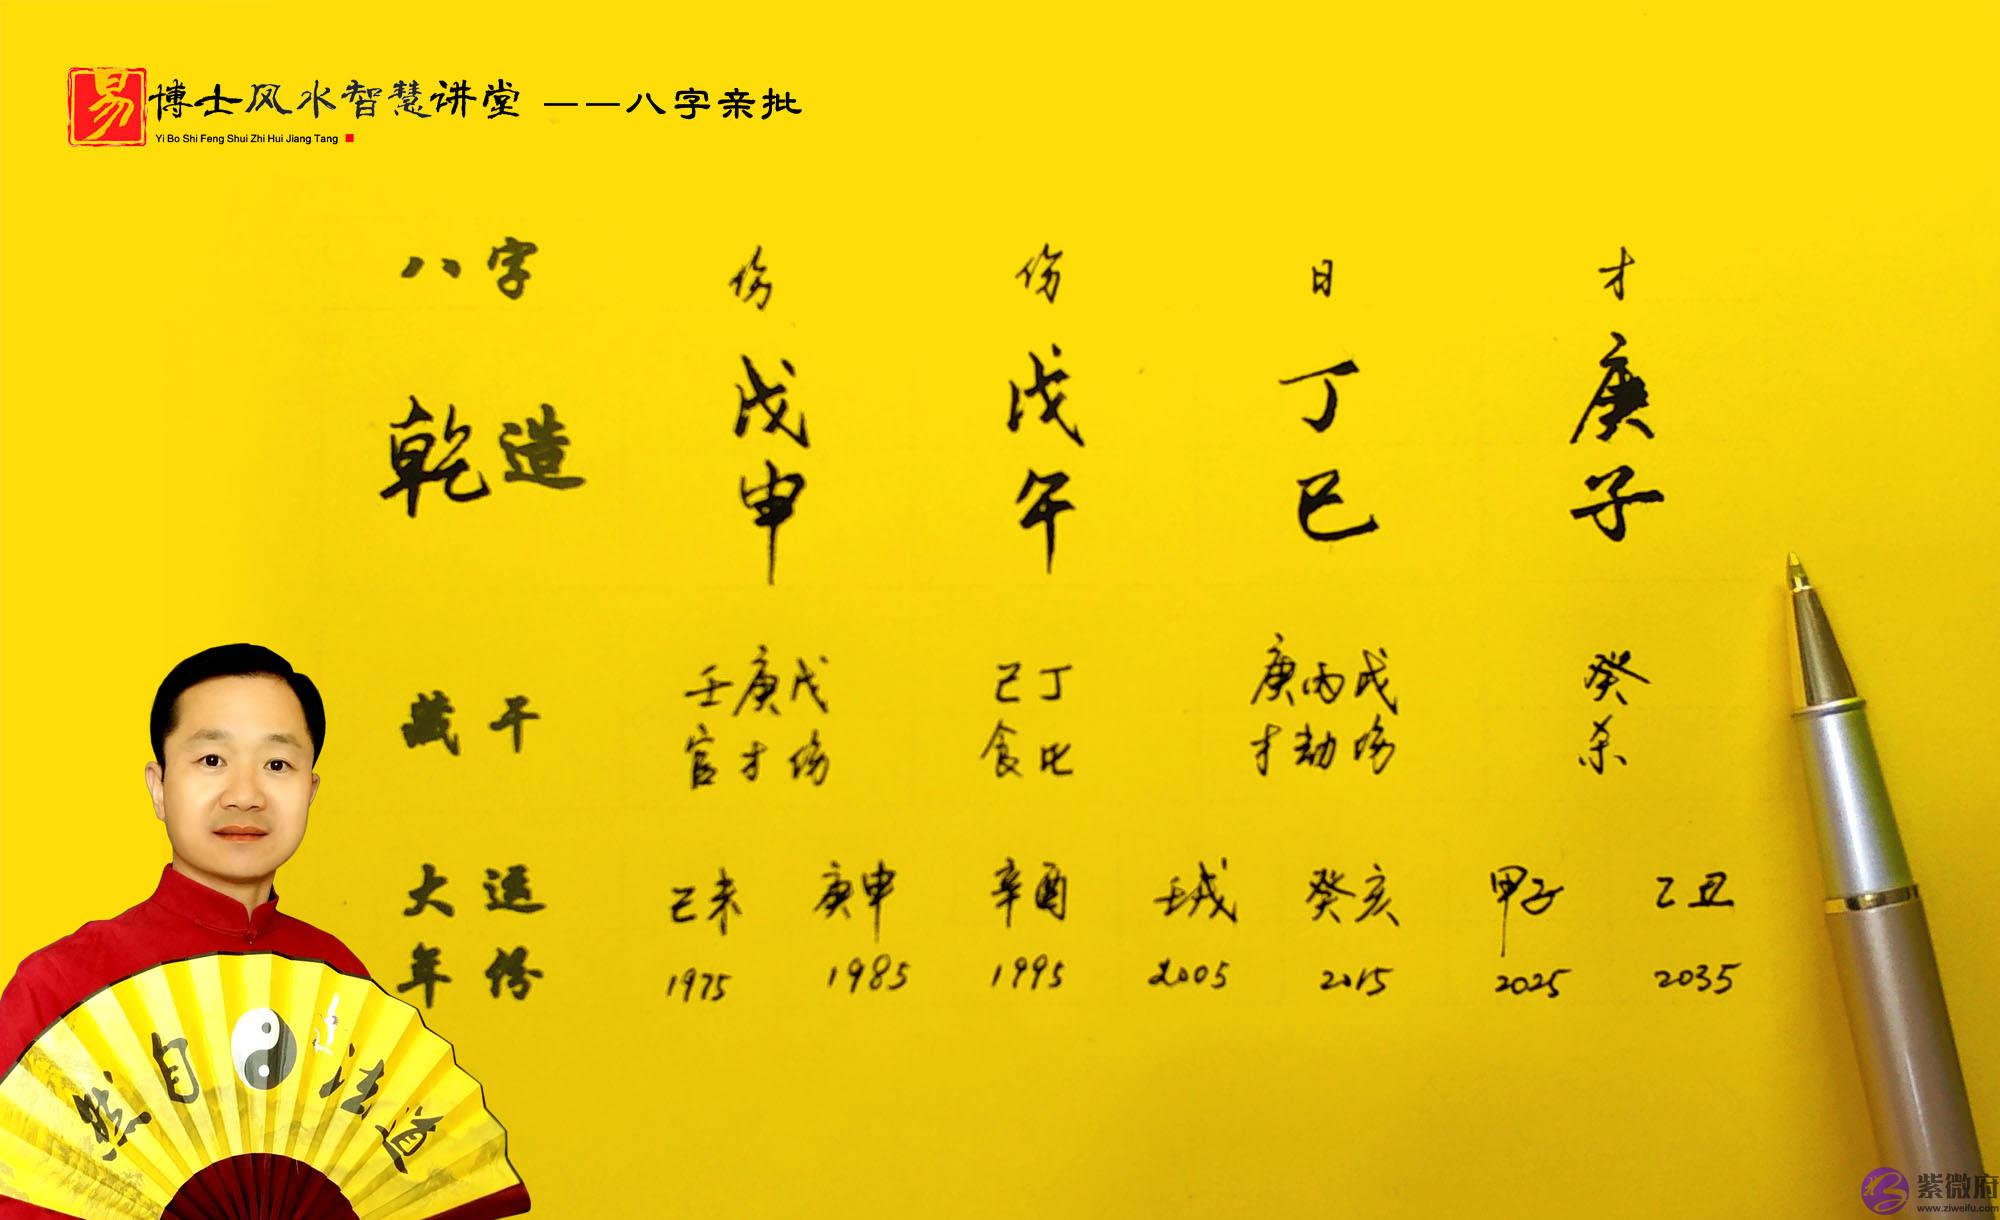 易 博士风水智慧讲堂 ——八字亲批
Yi Bo Shi Feng Shui Zhi Hui Jiang Tang
八字 伤 伤 日 才
乾造 戊 戊 丁 庚
申 午 巳 子
藏干 壬庚戊 己丁 庚丙戊 癸
官才伤 食比 才劫伤 杀
大运 己未 庚申 辛酉 壬戌 癸亥 甲子 乙丑
年份 1975 1985 1995 2005 2015 2025 2035
道法自然
紫微府
www.ziweifu.com